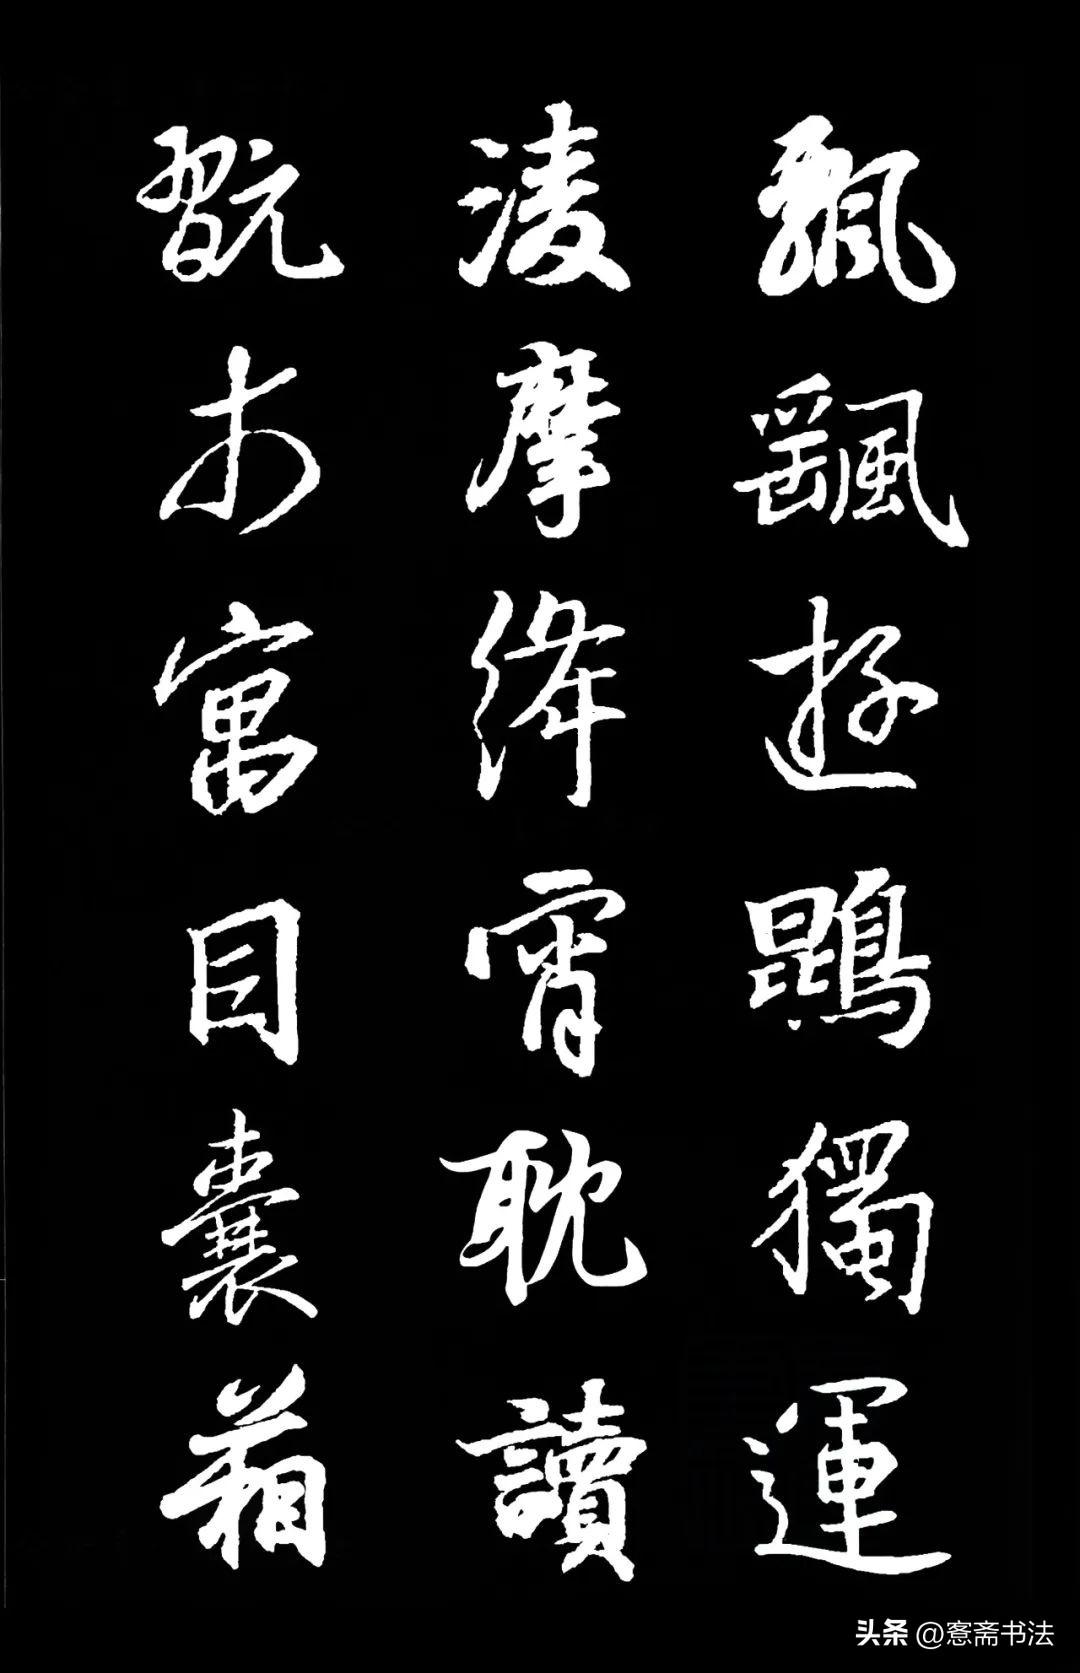 飄颻遊鵾獨運
淩摩絳霄耽讀
翫市寓目囊箱
头条 @愙斋书法